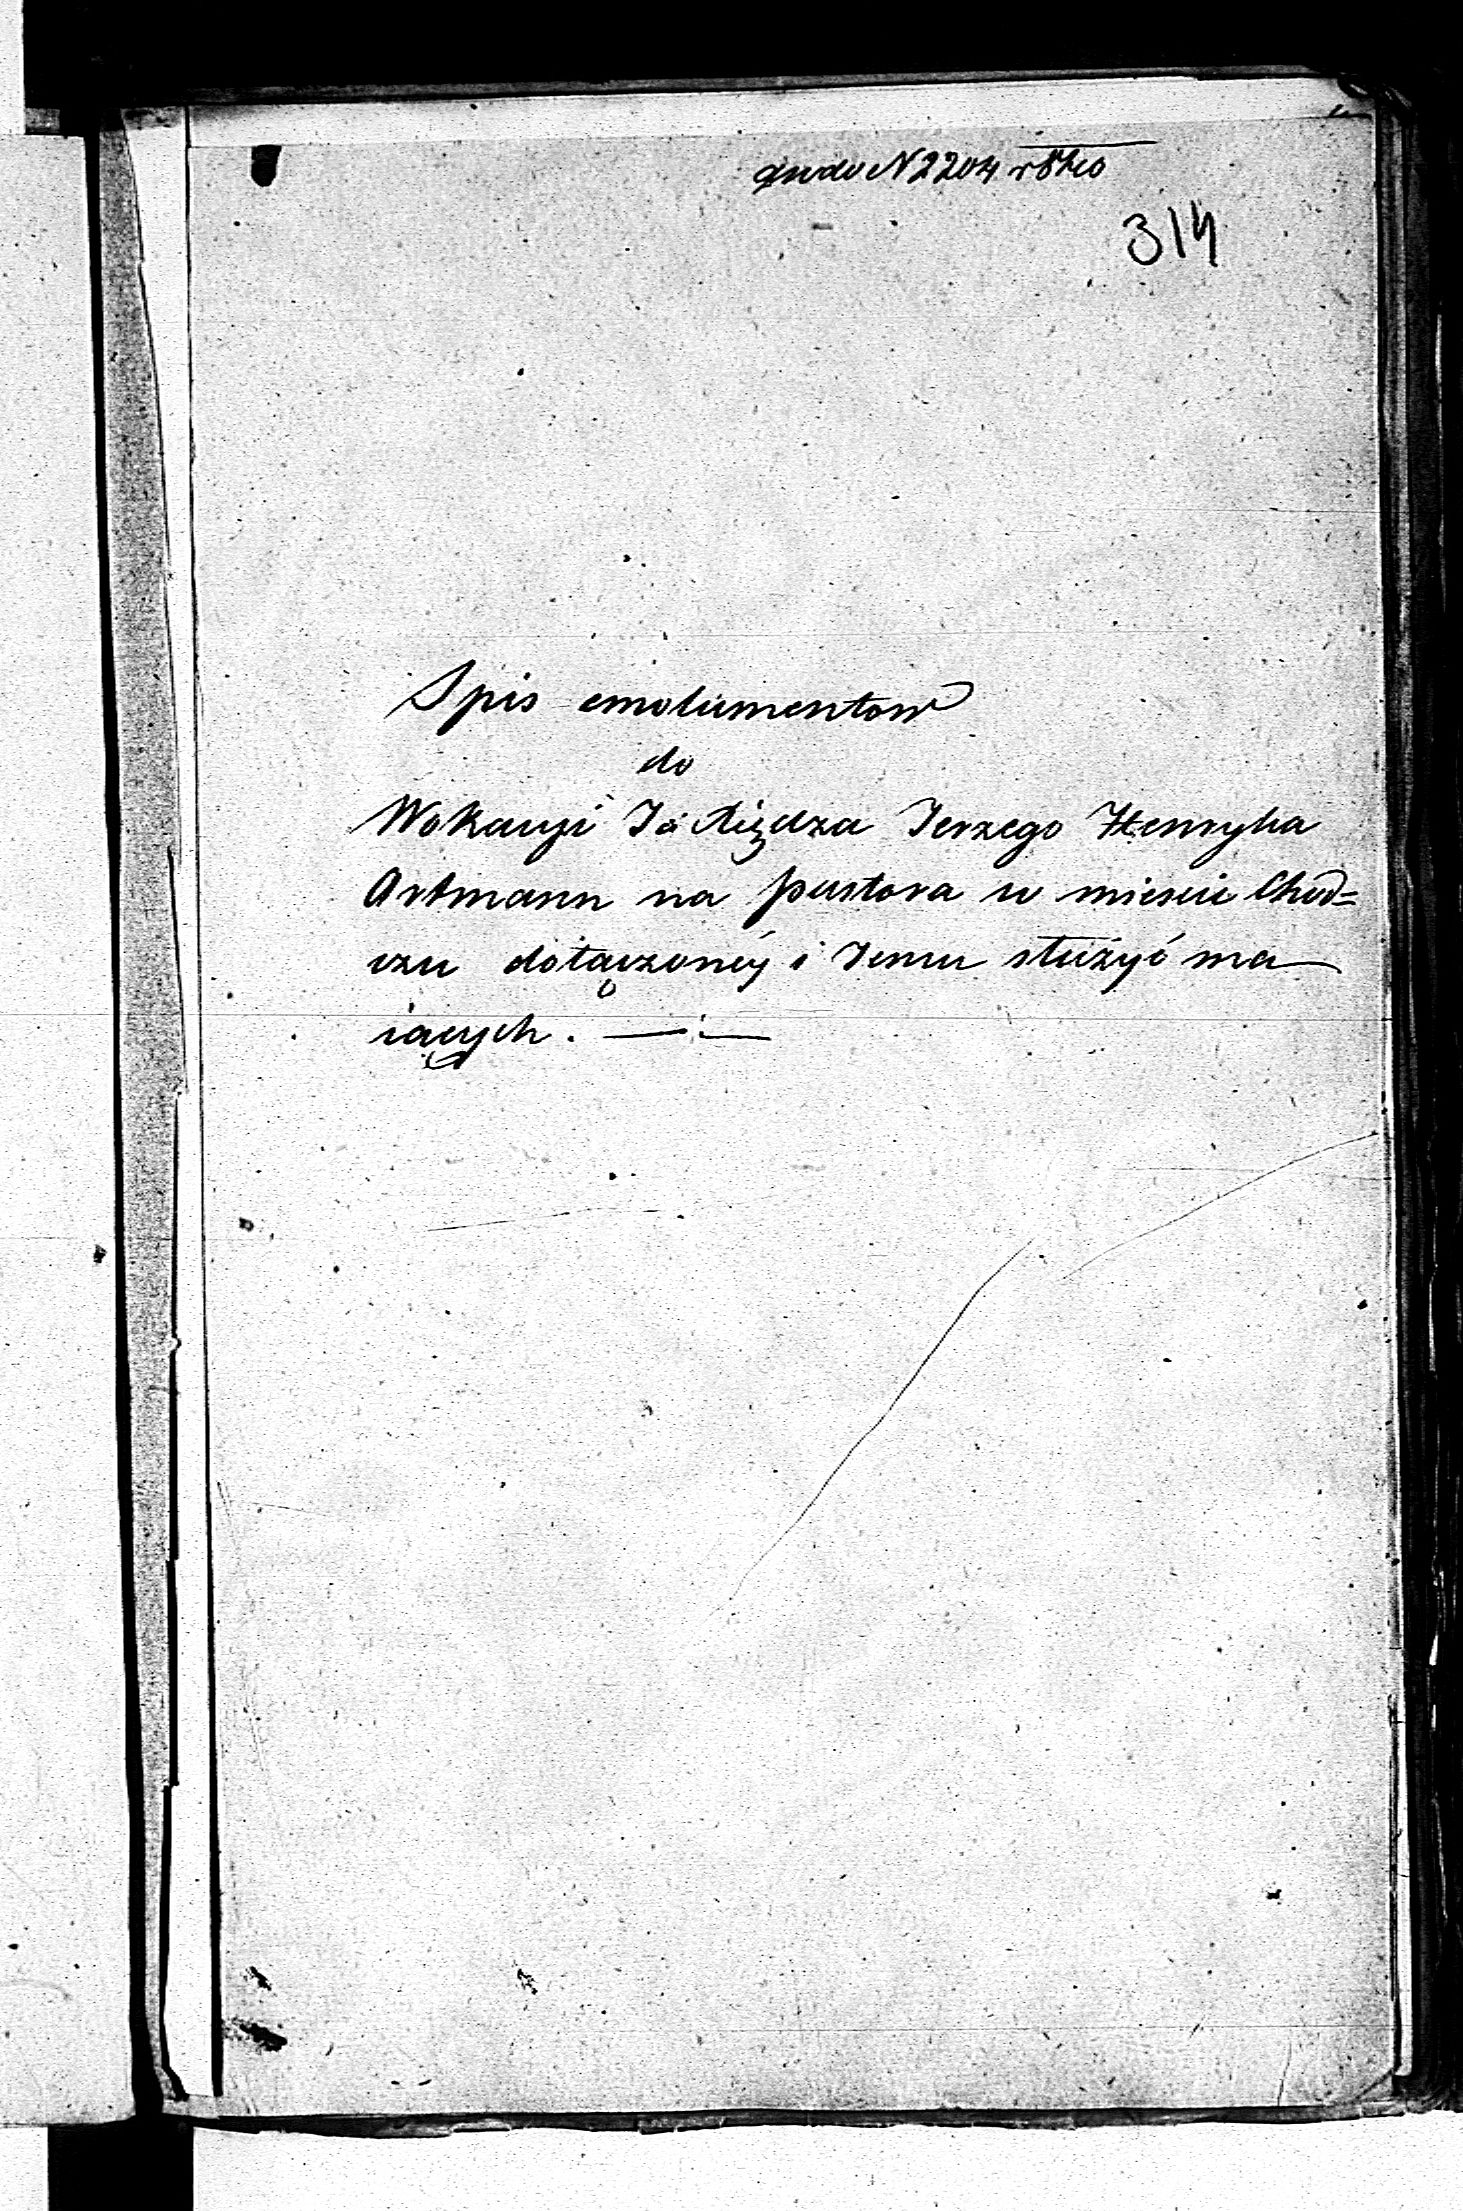 N 2204
314
Spis emolumentow
do
Wokacyi Xiędza Jerzego Henryka
Artmann na pastora w mieście Chod=
czu dołączonéy i Jemu służyć ma
iących. —:—